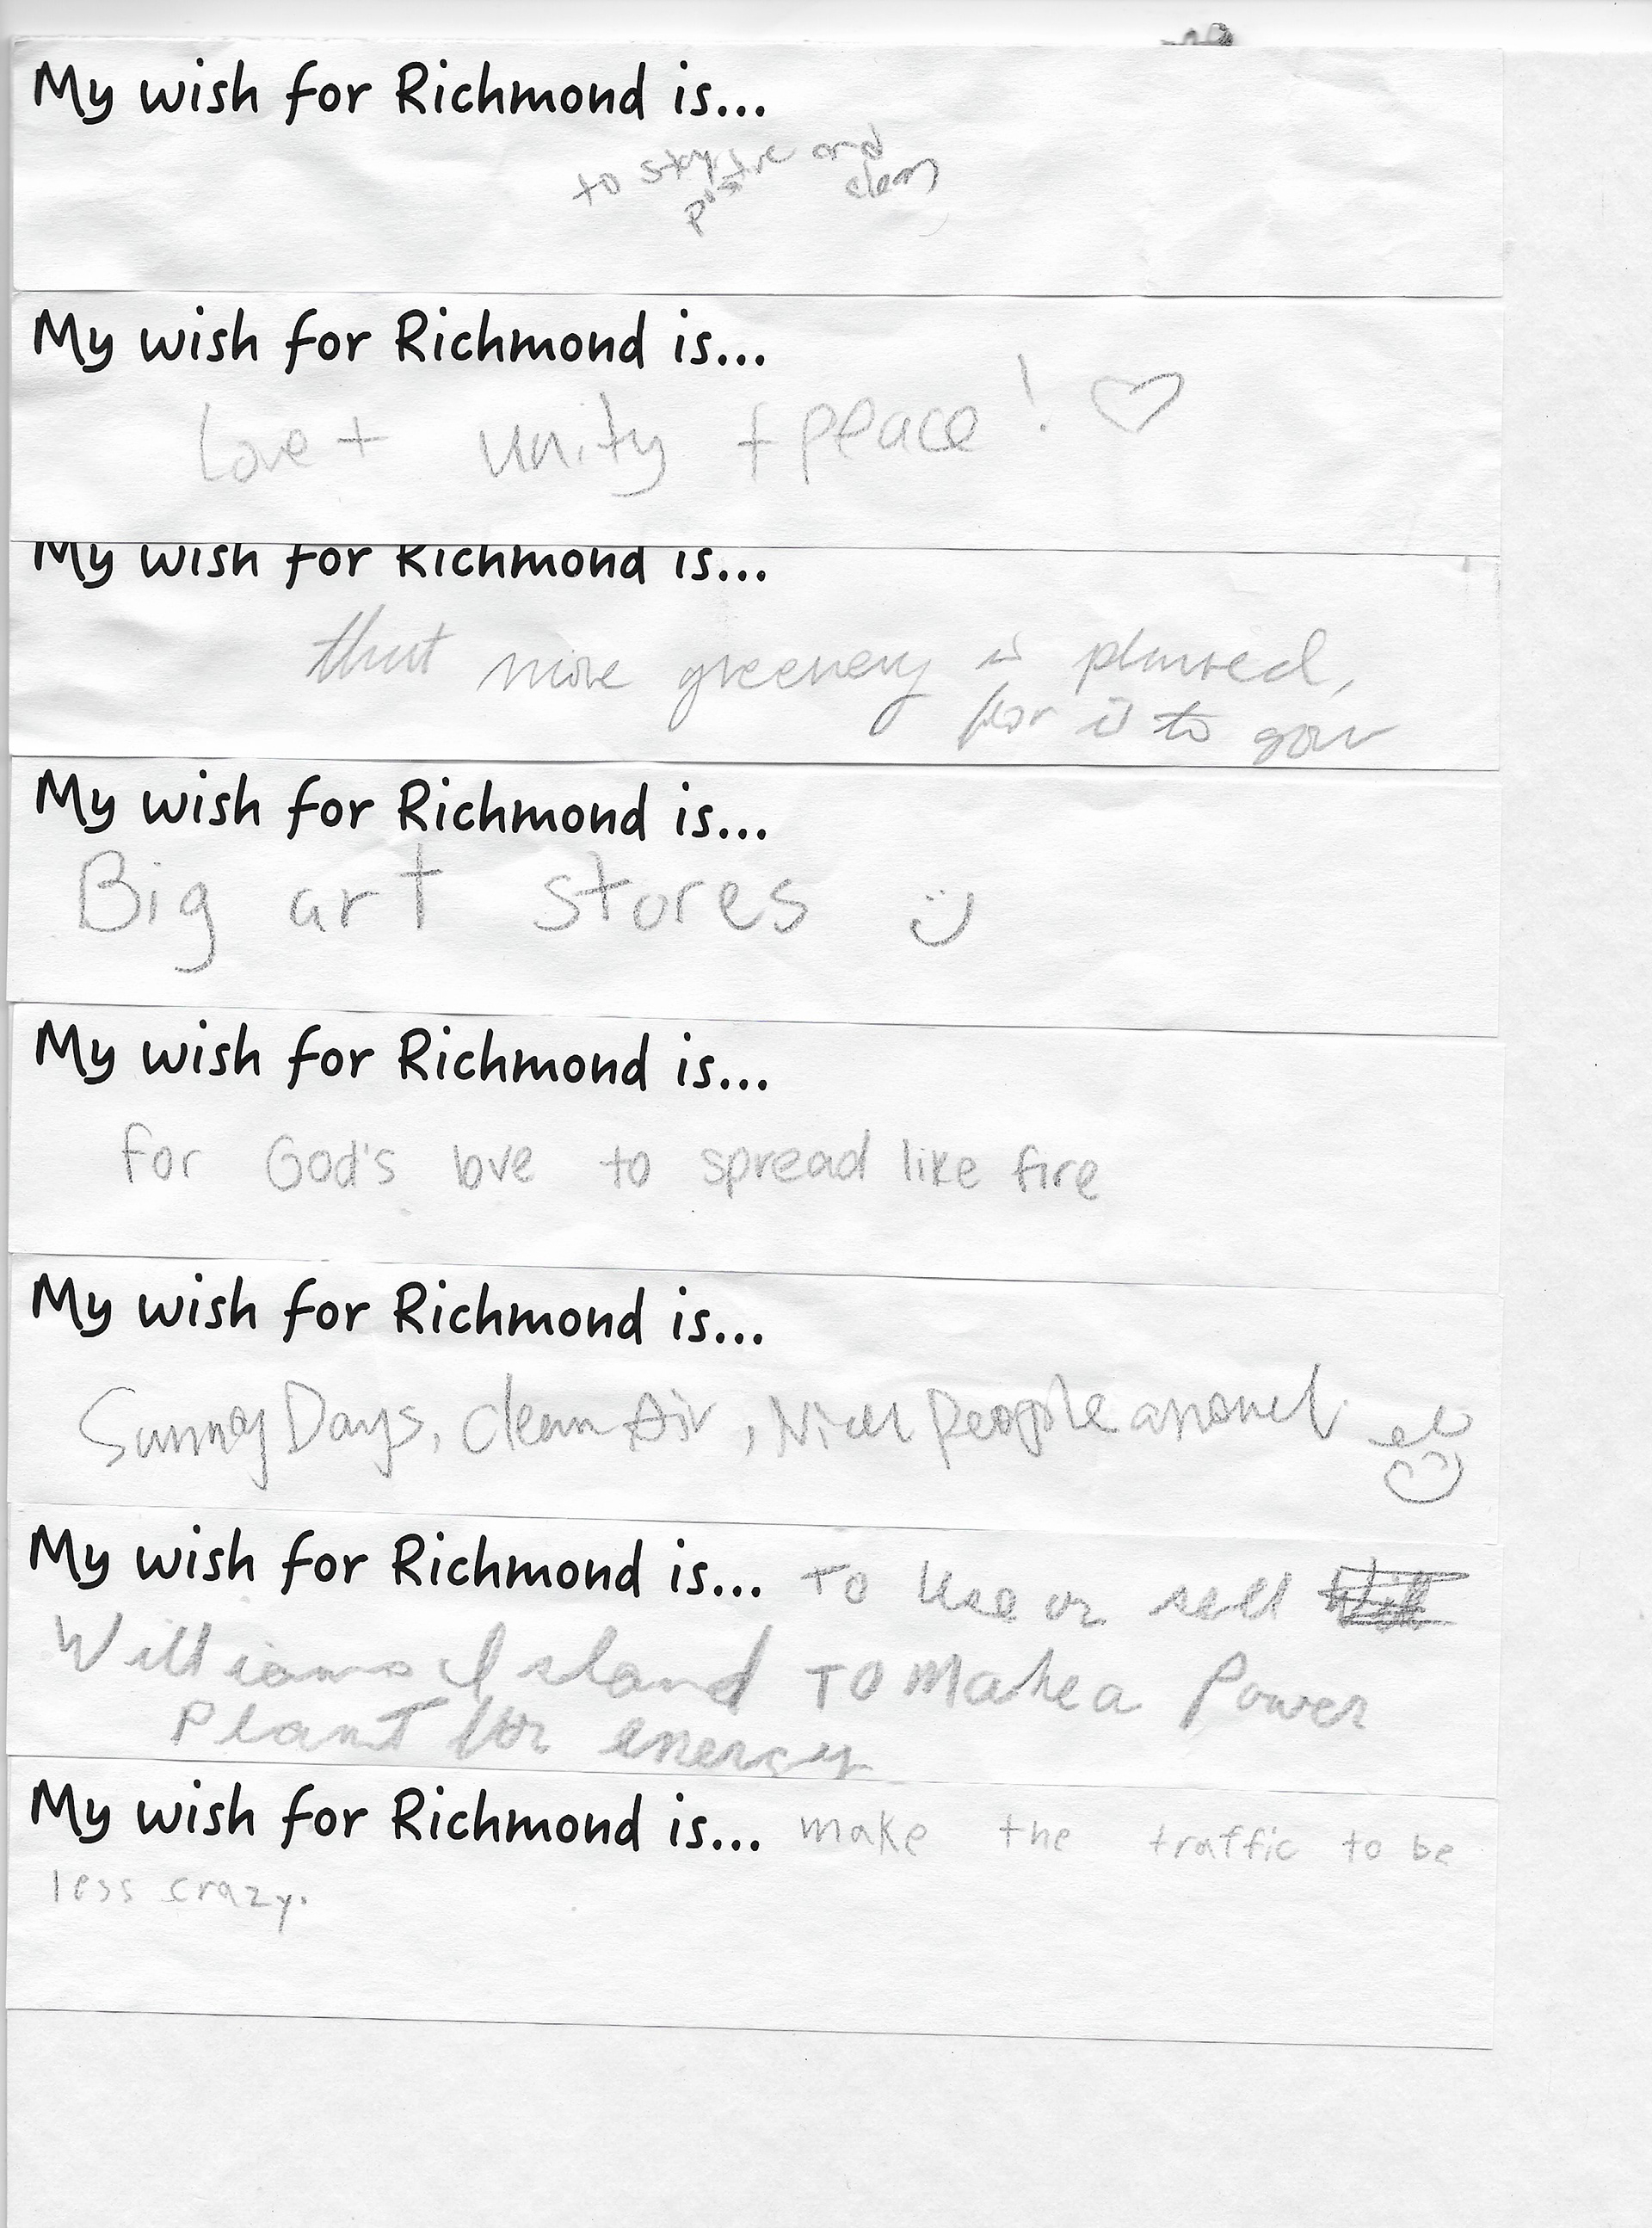 My wish for Richmond is...
to stay positive and
clean
My wish for Richmond is...
Love + unity + peace!
My wish for Richmond is...
that more greenery is planted,
for is to grow
My wish for Richmond is...
Big art stores
My wish for Richmond is...
for God's love to spread like fire
My wish for Richmond is...
Sunny Days, Clean Air, Nice People around
My wish for Richmond is... To Use or sell
Williams Island TO Make a Power
Plant for energy
My wish for Richmond is... make the traffic to be
less crazy.